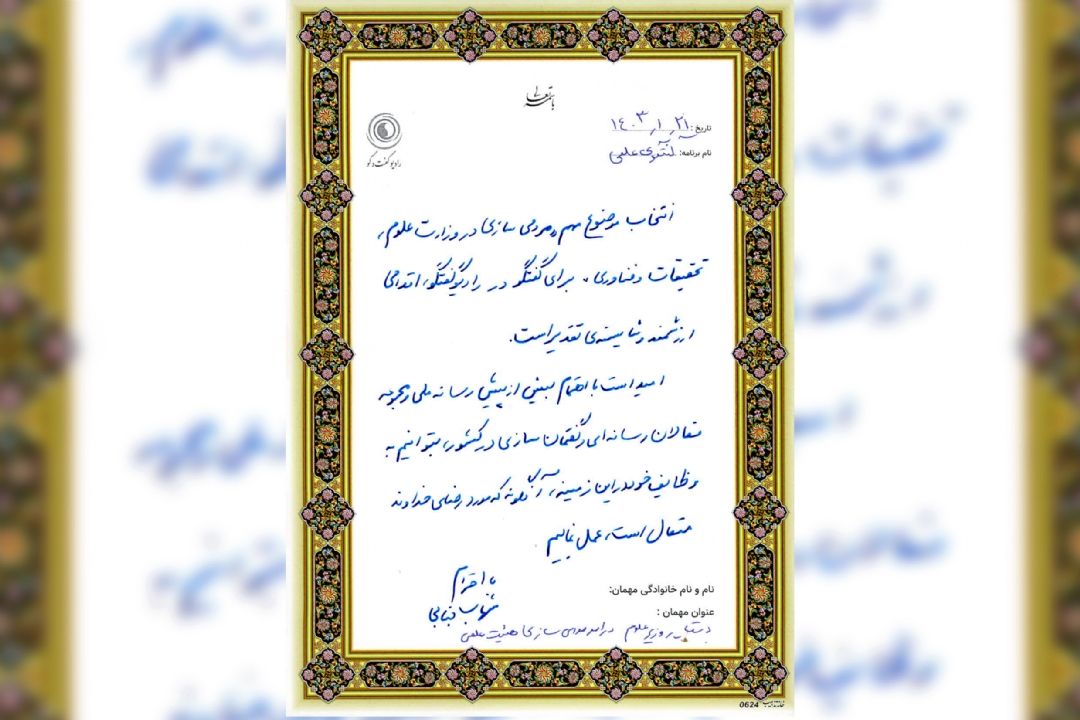 باسمه تعالی
تاریخ: ۱٤۰۳/۱/۲۱
نام برنامه: گفتگوی علمی
رادیو گفت و گو
انتخاب موضوع مهم مردمی سازی در وزارت علوم،
تحقیقات و فناوری، برای گفتگو در رادیو گفتگو، اقدامی
ارزشمند و شایسته‌ی تقدیر است.
امید است با اهتمام بیش از پیش رسانه ملی و مجموعه
فعالان رسانه‌ای و گفتمان سازی در کشور، بتوانیم به
وظایف خود در این زمینه، آنگونه که مورد رضای خداوند
متعال است، عمل نماییم.
با احترام
نام و نام خانوادگی مهمان:
عنوان مهمان :
وزیر علوم در امر مردمی سازی هیئت علمی
0624